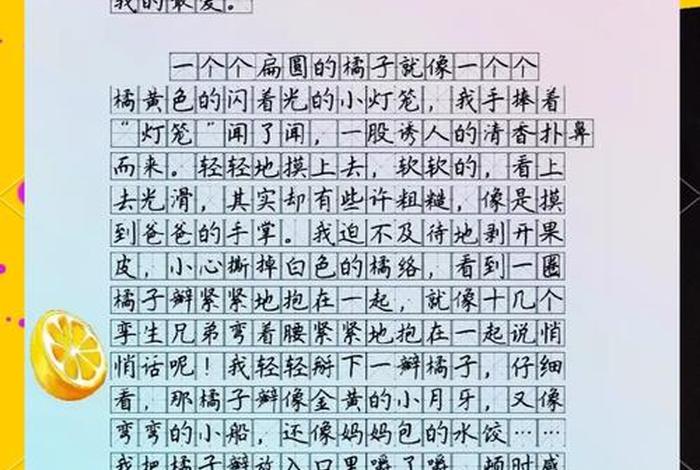 我的最爱。
一个个扁圆的橘子就像一个个
橘黄色的闪着光的小灯笼，我手捧着
“灯笼”闻了闻，一股诱人的清香扑鼻
而来。轻轻地摸上去，软软的，看上
去光滑，其实却有些许粗糙，像是摸
到爸爸的手掌。我迫不及待地剥开果
皮，小心撕掉白色的橘络，看到一圈
橘子辫紧紧地抱在一起，就像十几个
孪生兄弟弯着腰紧紧地抱在一起说悄
悄话呢！我轻轻掰下一瓣橘子，仔细
看，那橘子辫像金黄的小月牙，又像
弯弯的小船，还像妈妈包的水饺……
我把橘子辫放入口里嚼了嚼，顿时感